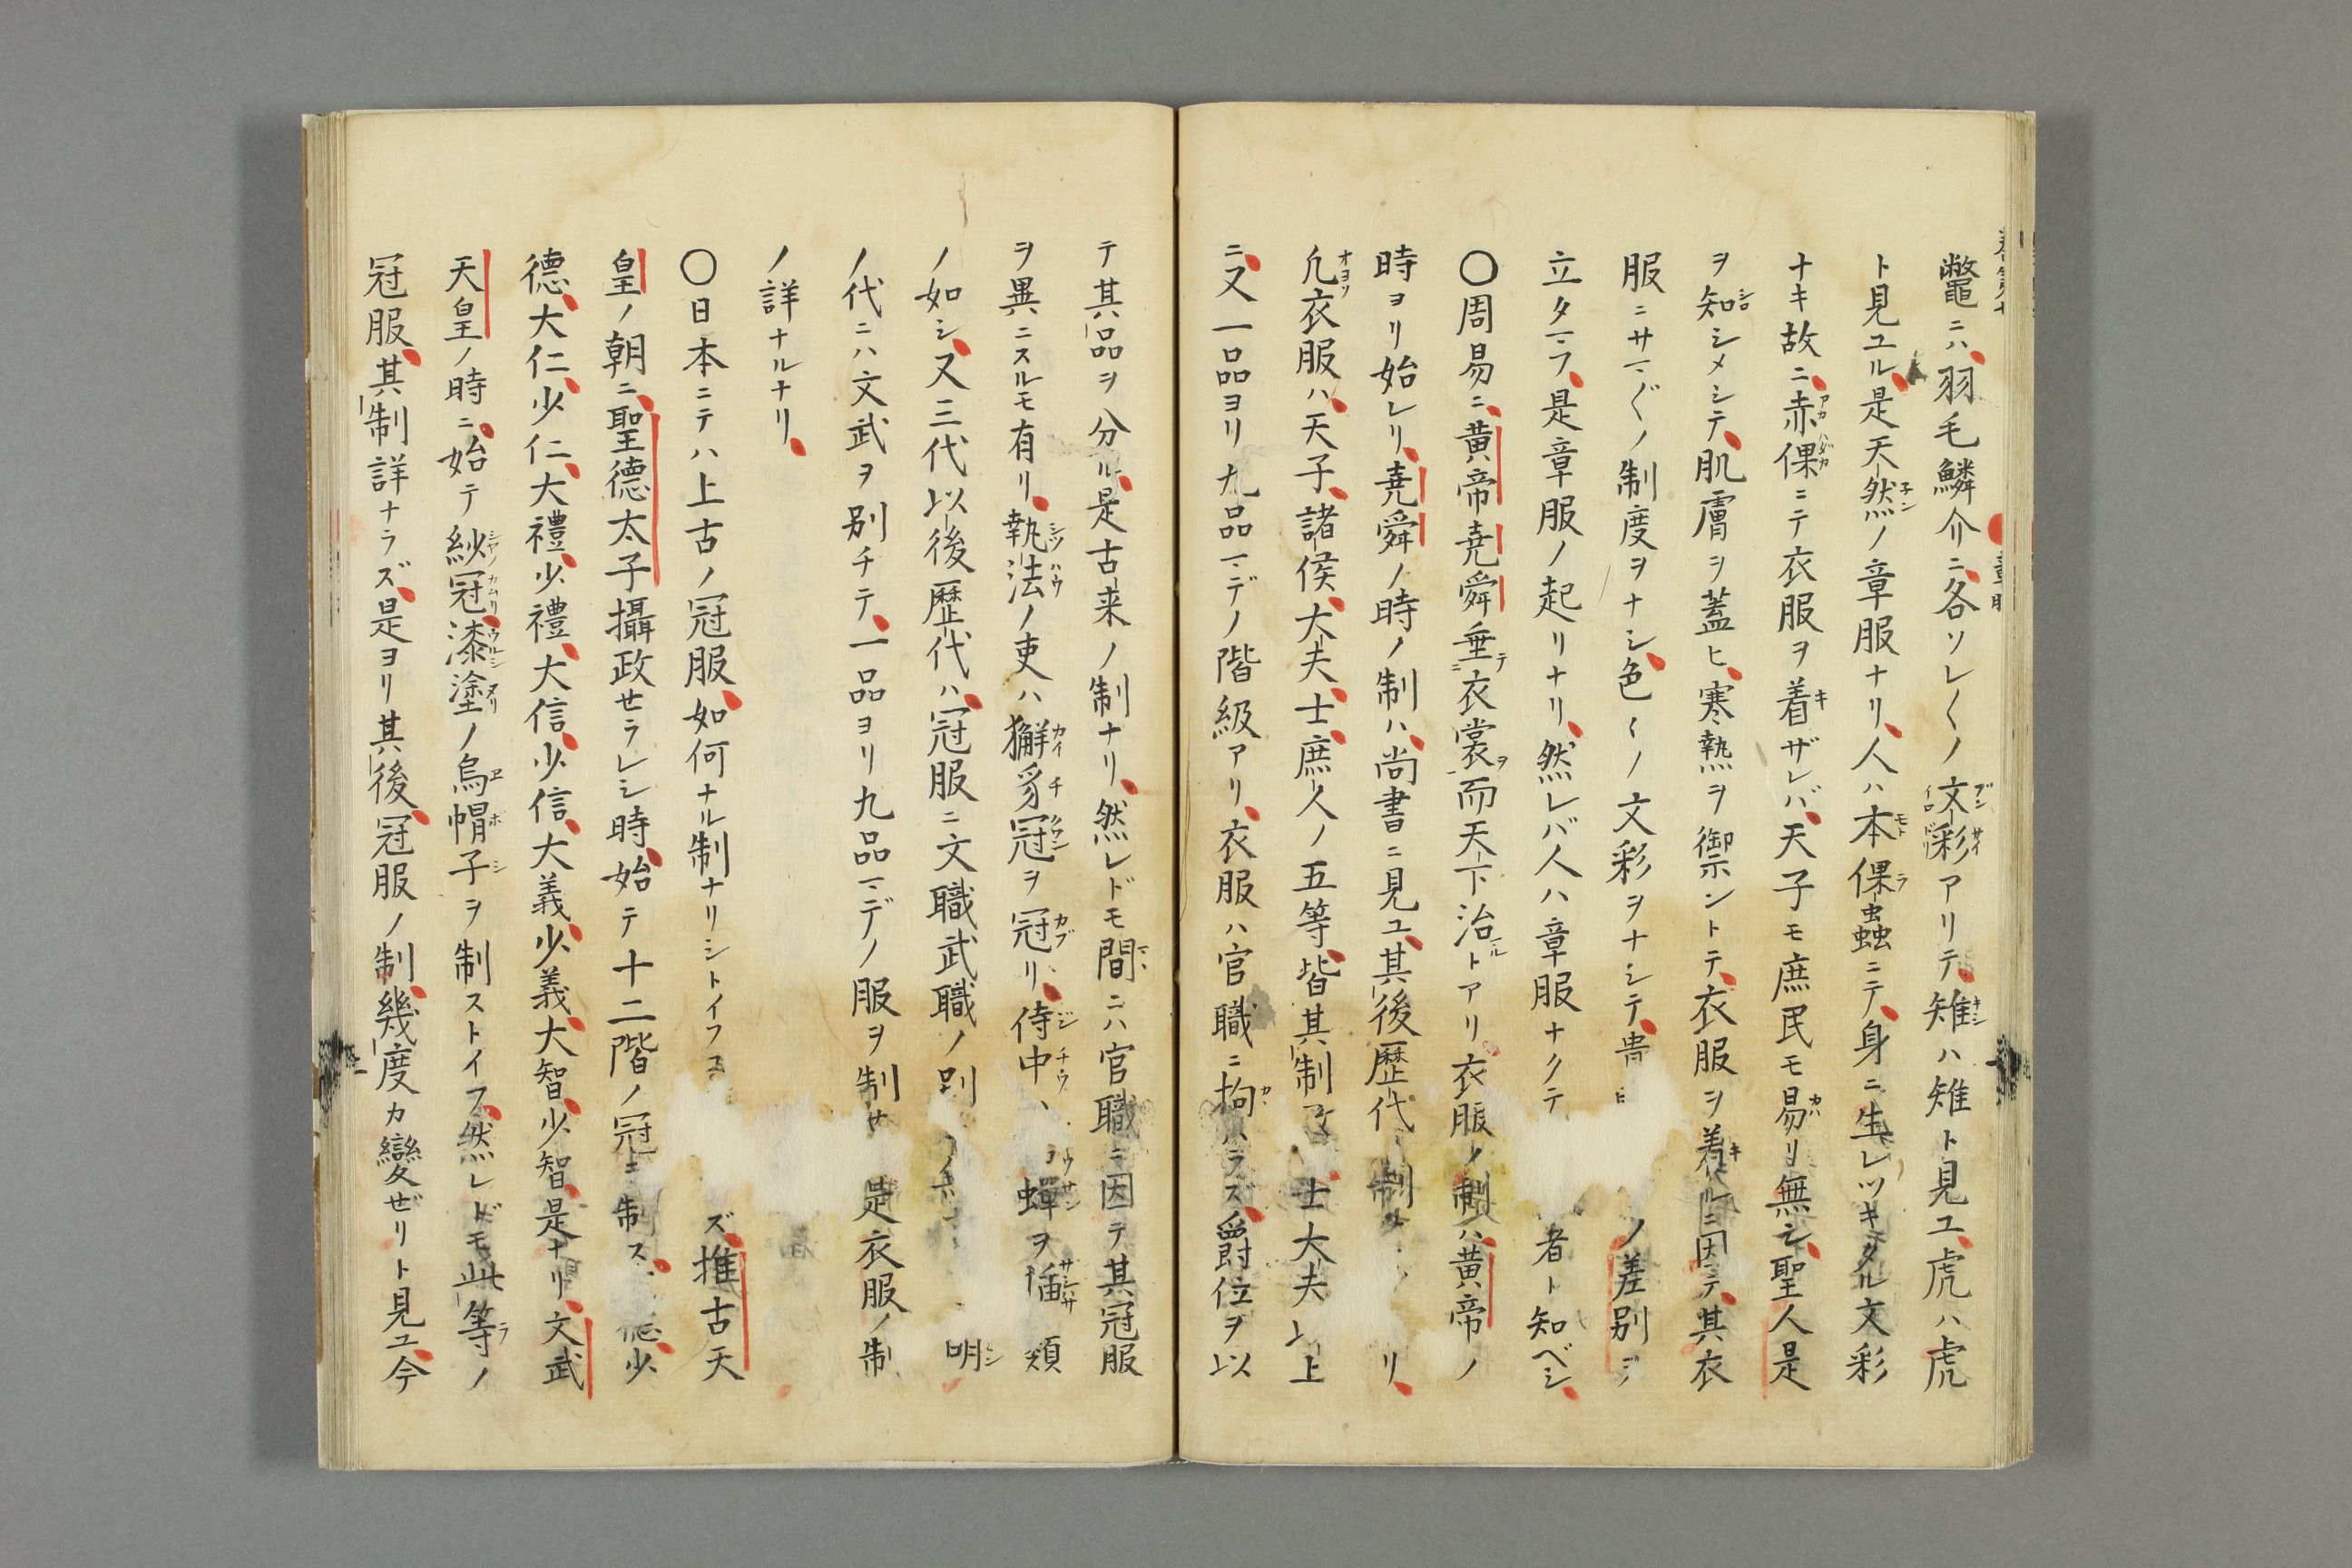 鼈ニハ羽毛鱗介ニ各ソレ〱ノ文彩アリテ雉ハ雉ト見ユ虎ハ虎
ト見ユル是天然ノ章服ナリ人ハ本倮蟲ニテ身ニ生レツキタル文彩
ナキ故ニ赤倮ニテ衣服ヲ着ザレバ天子モ庶民モ易リ無シ聖人是
ヲ知シメシテ肌膚ヲ蓋ヒ寒熱ヲ禦ントテ衣服ヲ着ルニ因テ其衣
服ニサマ〲ノ制度ヲナシ色〱ノ文彩ヲナシテ貴ノ差別ヲ
立タマフ是章服ノ起リナリ然レバ人ハ章服ナクテ者ト知ベシ
〇周易ニ黄帝堯舜垂衣裳而天下治トアリ衣服ノ制ハ黄帝ノ
時ヨリ始レリ堯舜ノ時ノ制ハ尚書ニ見ユ其後歴代制リ
凡衣服ハ天子諸侯大夫士庶人ノ五等皆其制士大夫以上
ニ又一品ヨリ九品マデノ階級アリ衣服ハ官職ニ拘ハラズ爵位ヲ以
テ其品ヲ分ル是古来ノ制ナリ然レドモ間ニハ官職ニ因テ其冠服
ヲ異ニスルモ有リ執法ノ吏ハ獬豸冠ヲ冠リ侍中蟬ヲ類
ノ如シ又三代以後歴代ハ冠服ニ文職武職ノ別明
ノ代ニハ文武ヲ別チテ一品ヨリ九品マデノ服ヲ制是衣服ノ制
ノ詳ナルナリ
〇日本ニテハ上古ノ冠服如何ナル制ナリシトイフズ推古天
皇ノ朝ニ聖德太子攝政セラレシ時始テ十二階ノ冠ヲ制ス德少
德大仁少仁大禮少禮大信少信大義少義大智少智是ナリ文武
天皇ノ時ニ始テ紗冠漆塗ノ烏帽子ヲ制ストイフ然レドモ此等ノ
冠服其制詳ナラズ是ヨリ其後冠服ノ制幾度カ變ぜリト見ユ今